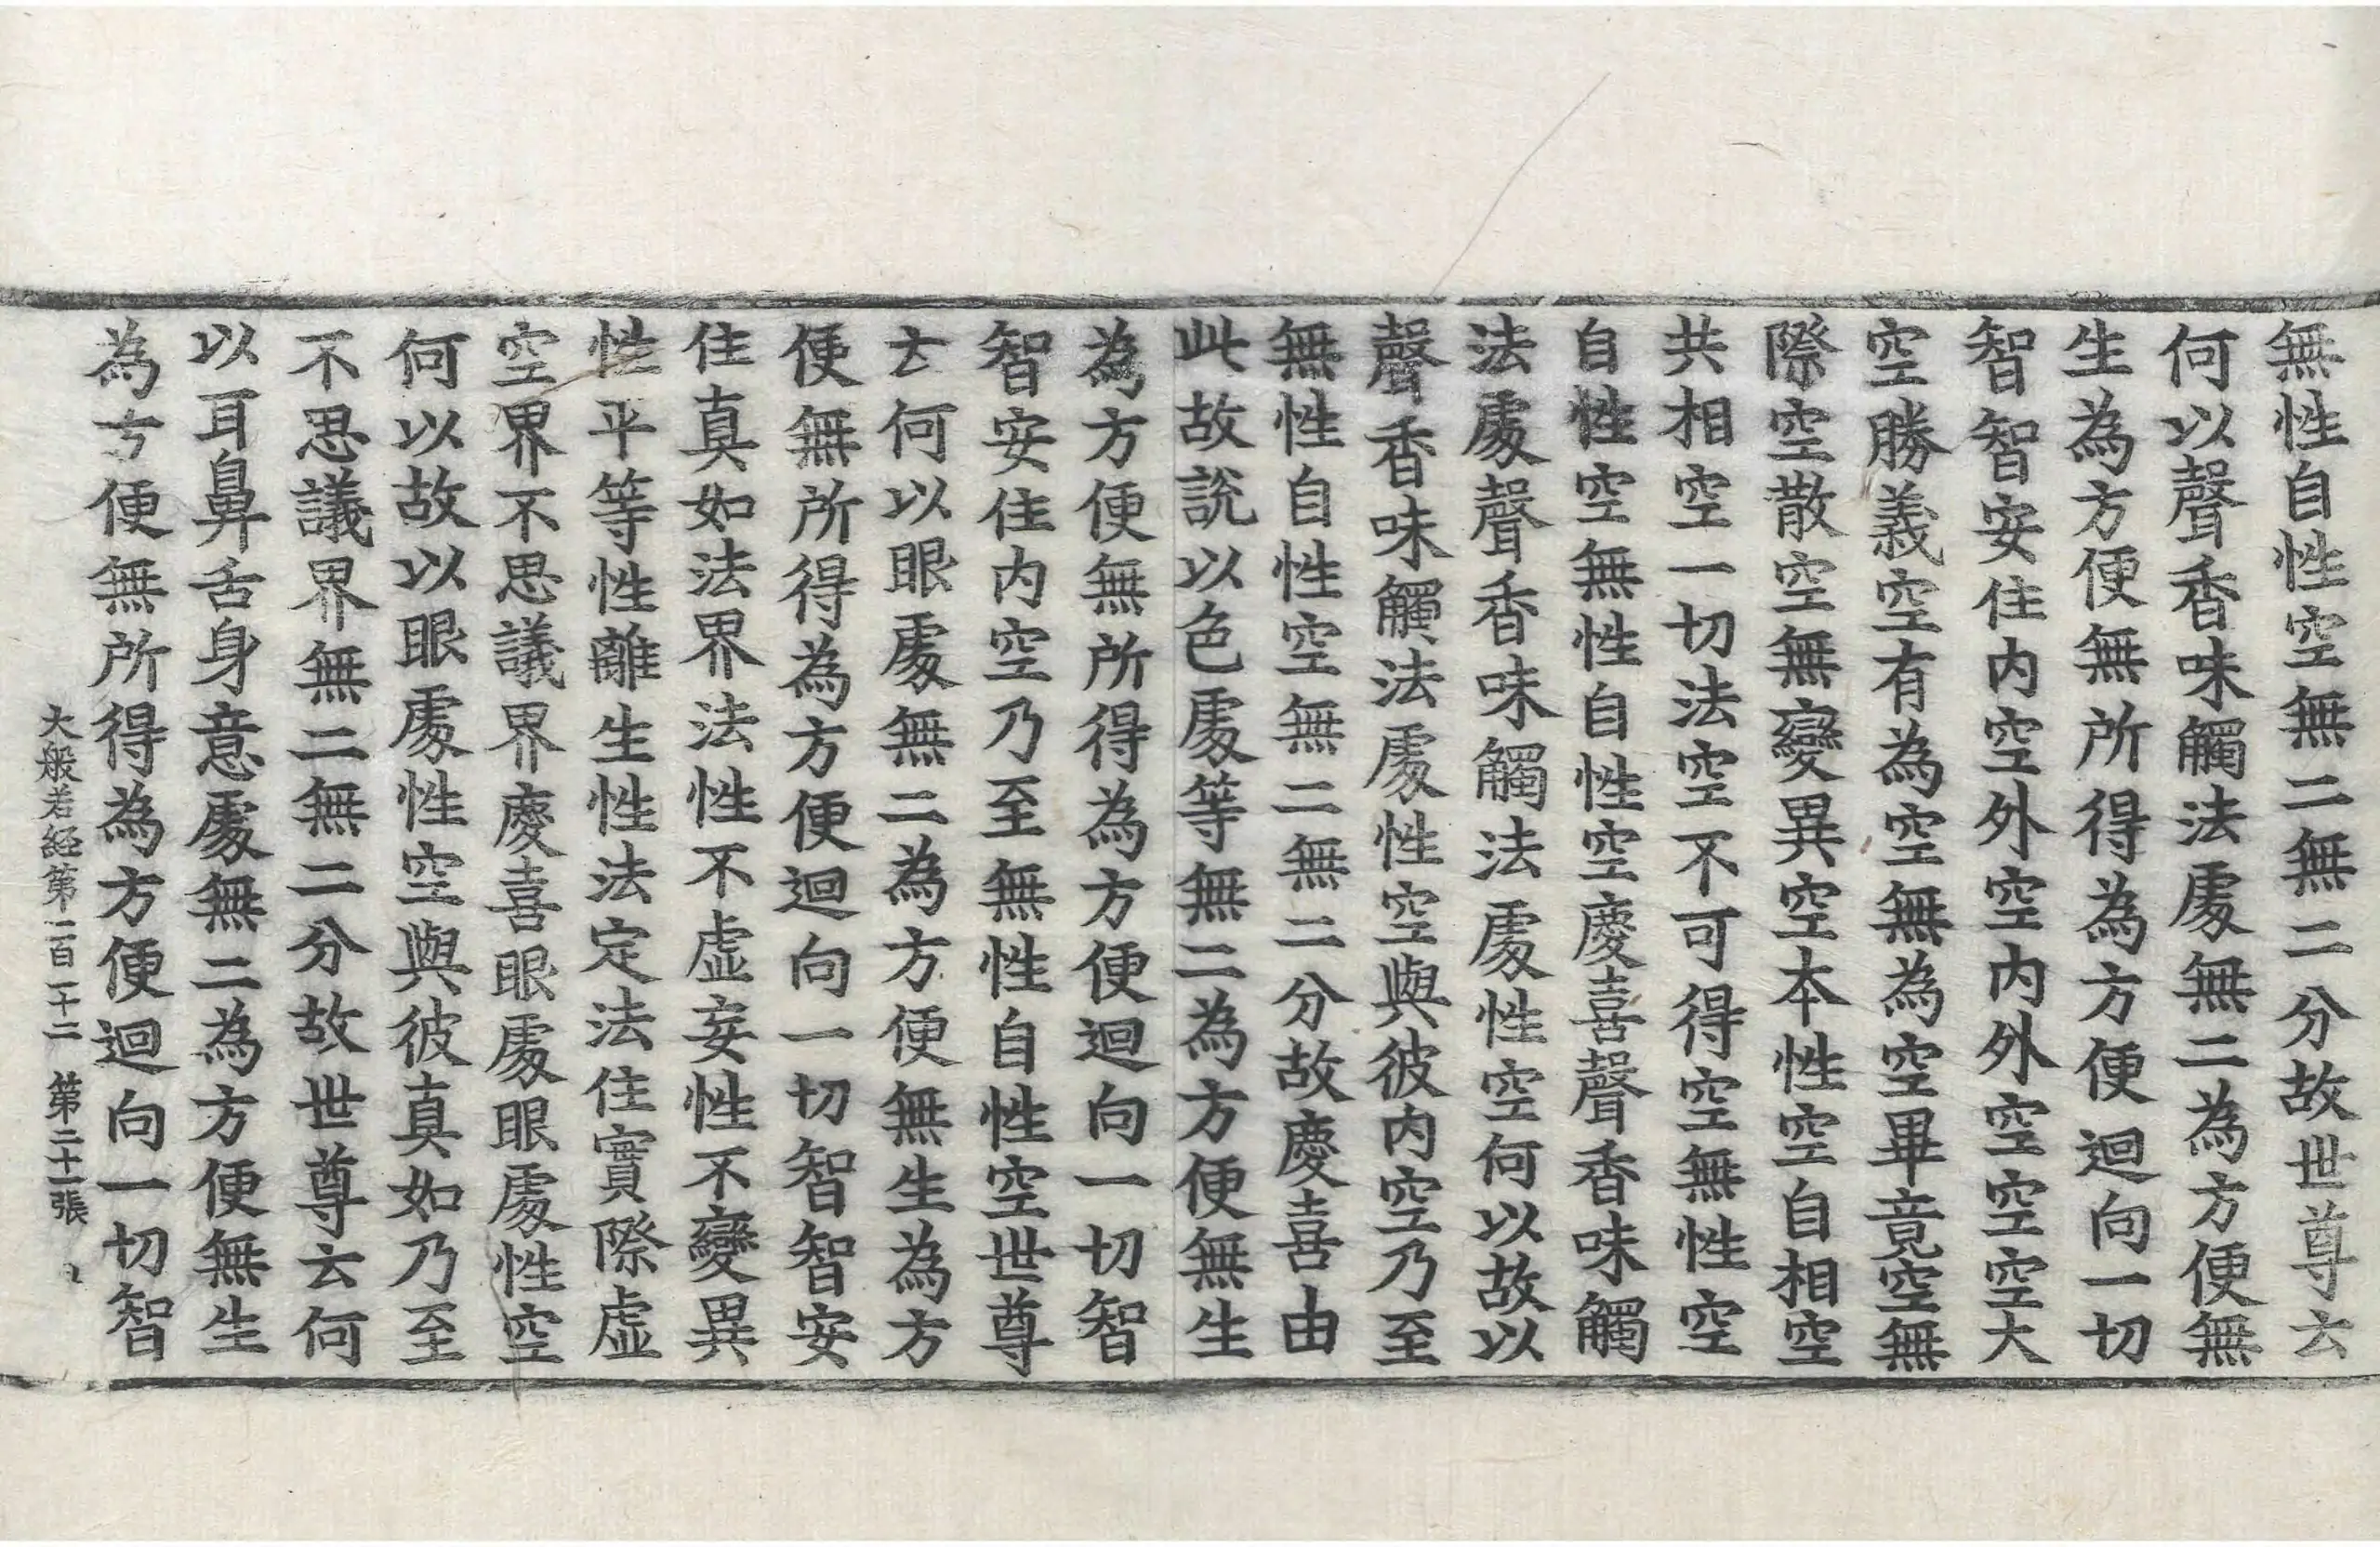 無性自性空無二無二分故世尊云
何以聲香味觸法處無二為方便無
生為方便無所得為方便迴向一切
智智安住内空外空内外空空空大
空勝義空有為空無為空畢竟空無
際空散空無變異空本性空自相空
共相空一切法空不可得空無性空
自性空無性自性空慶喜聲香味觸
法處聲香味觸法處性空何以故以
聲香味觸法處性空與彼内空乃至
無性自性空無二無二分故慶喜由
此故說以色處等無二為方便無生
為方便無所得為方便迴向一切智
智安住内空乃至無性自性空世尊
云何以眼處無二為方便無生為方
便無所得為方便迴向一切智智安
住真如法界法性不虛妄性不變異
性平等性離生性法定法住實際虛
空界不思議界慶喜眼處眼處性空
何以故以眼處性空與彼真如乃至
不思議界無二無二分故世尊云何
以耳鼻舌身意處無二為方便無生
為方便無所得為方便迴向一切智
大般若経第一百一十二 第二十一張